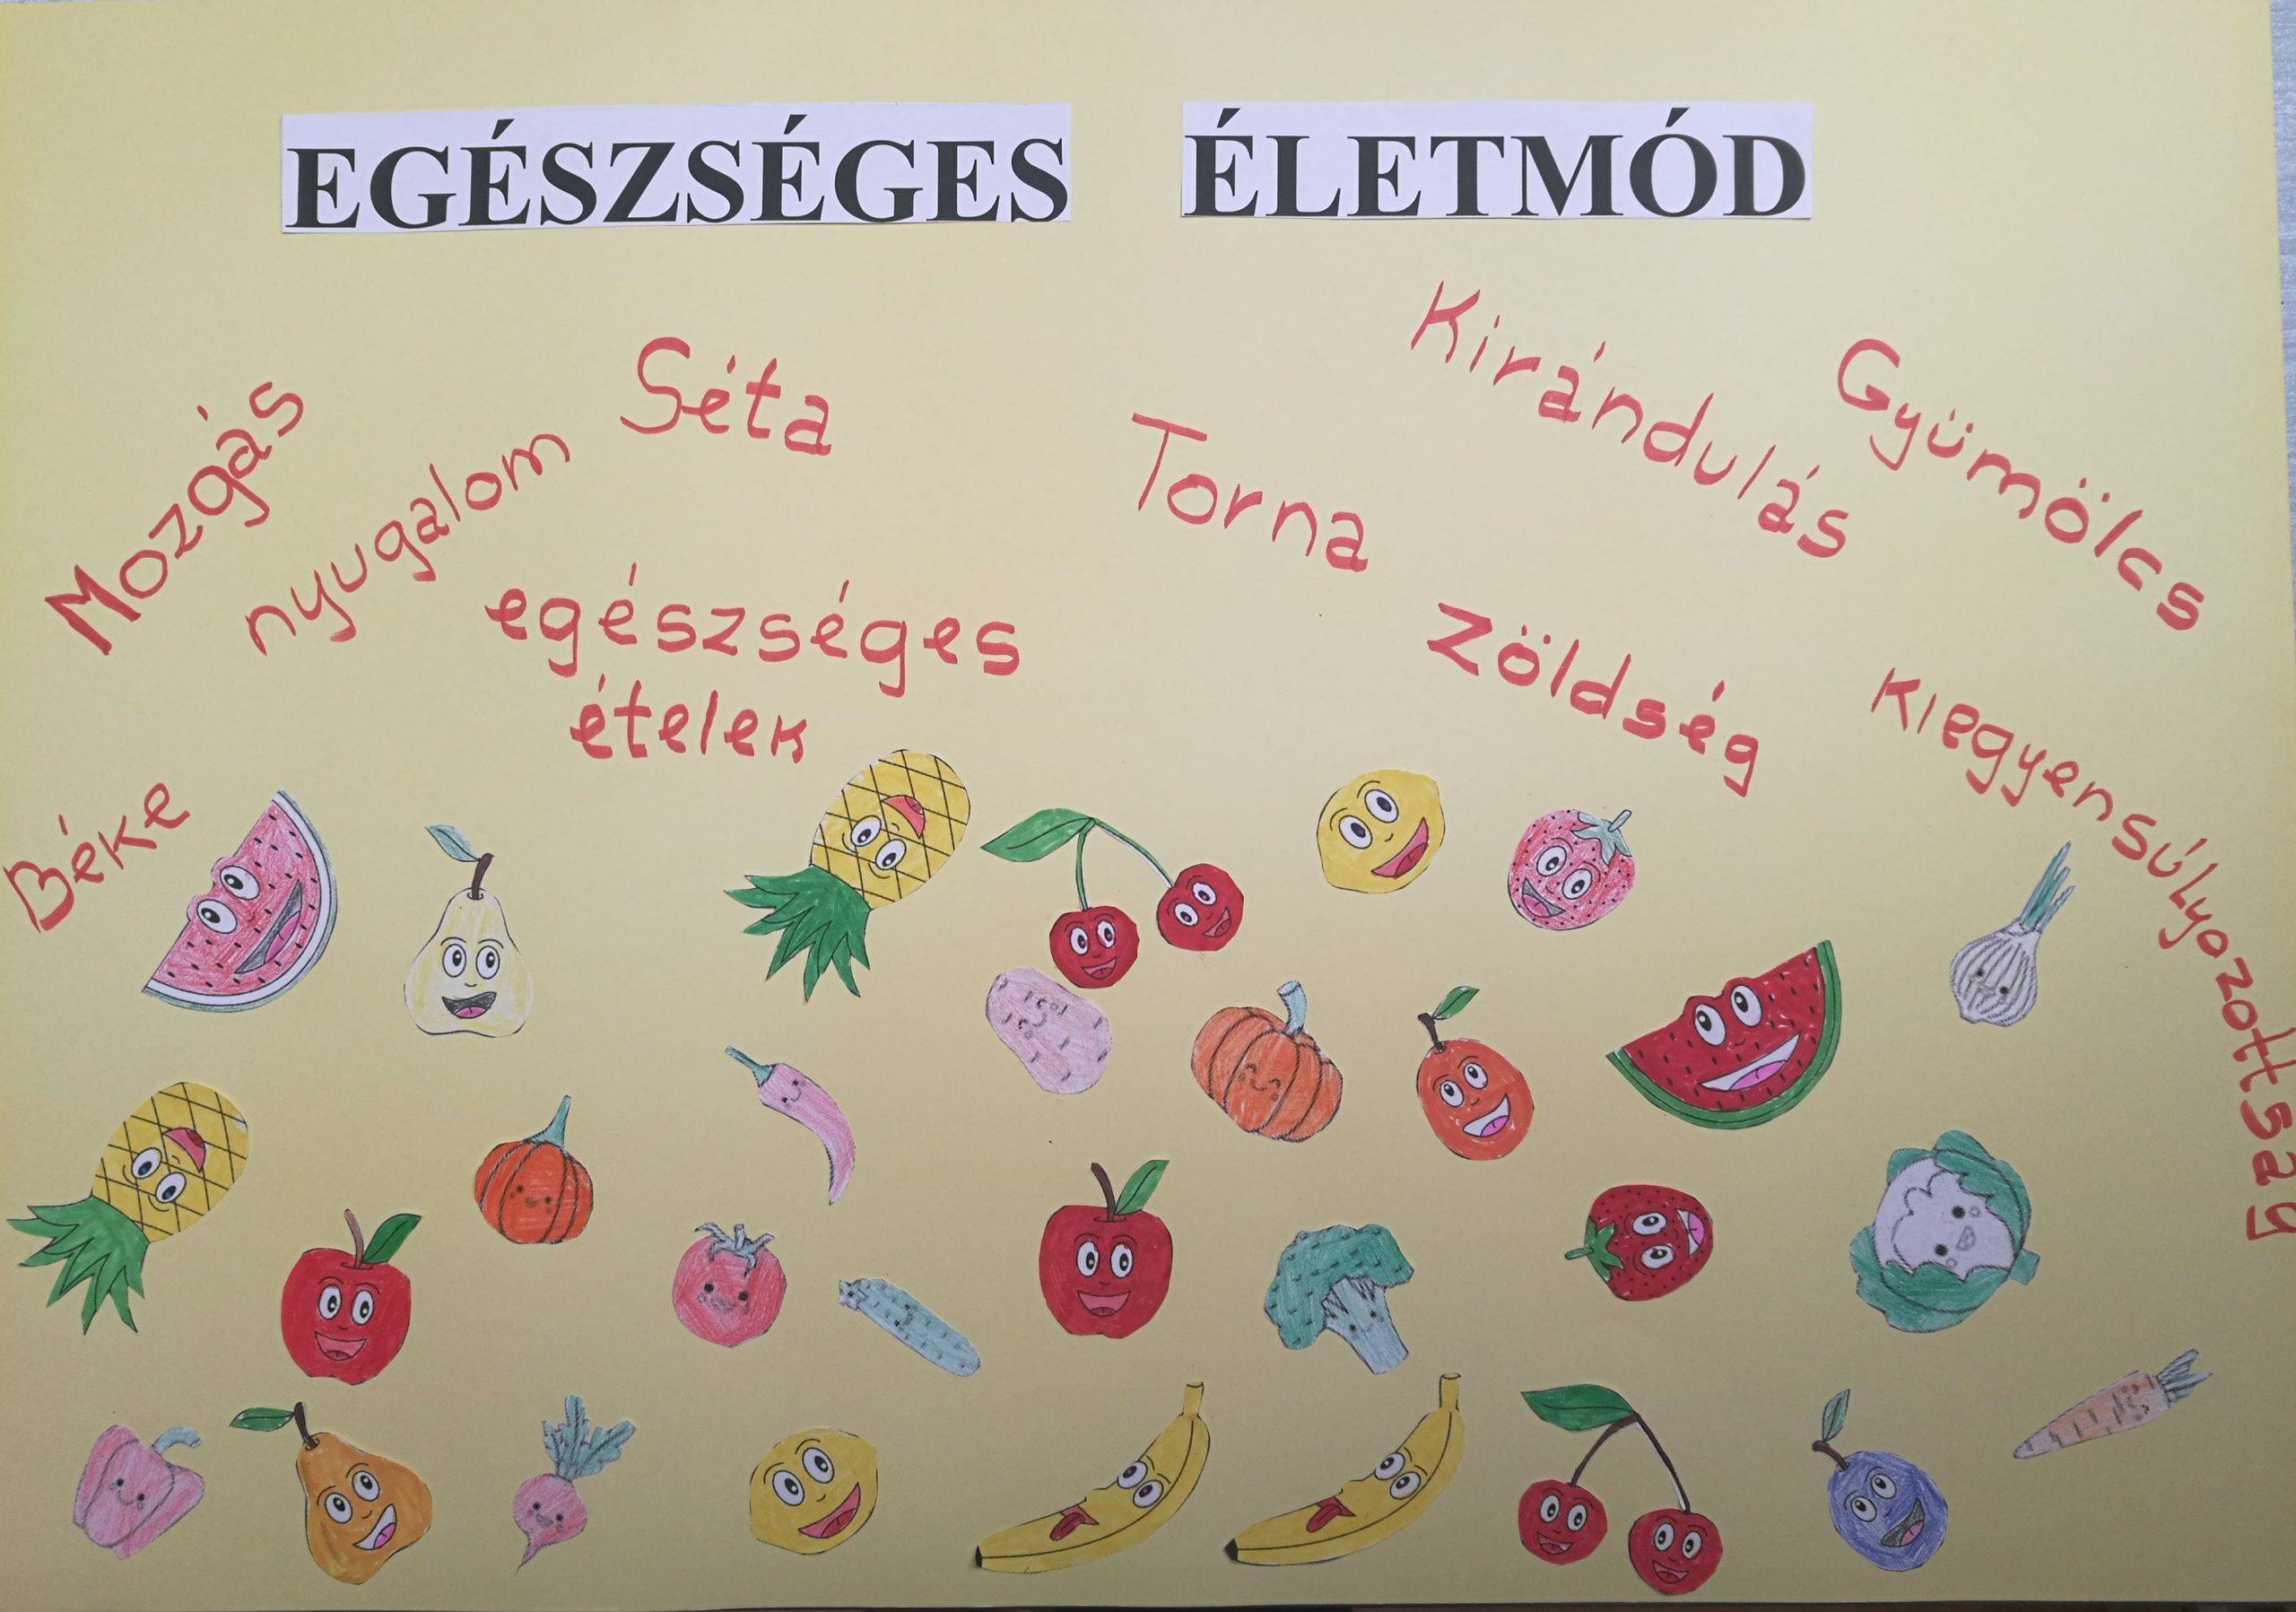 EGÉSZSÉGES ÉLETMÓD
Mozgás
nyugalom
Séta
Torna
Kirándulás
Gyümölcs
egészséges
ételek
Zöldség
Kiegyensúlyozottszg
Béke